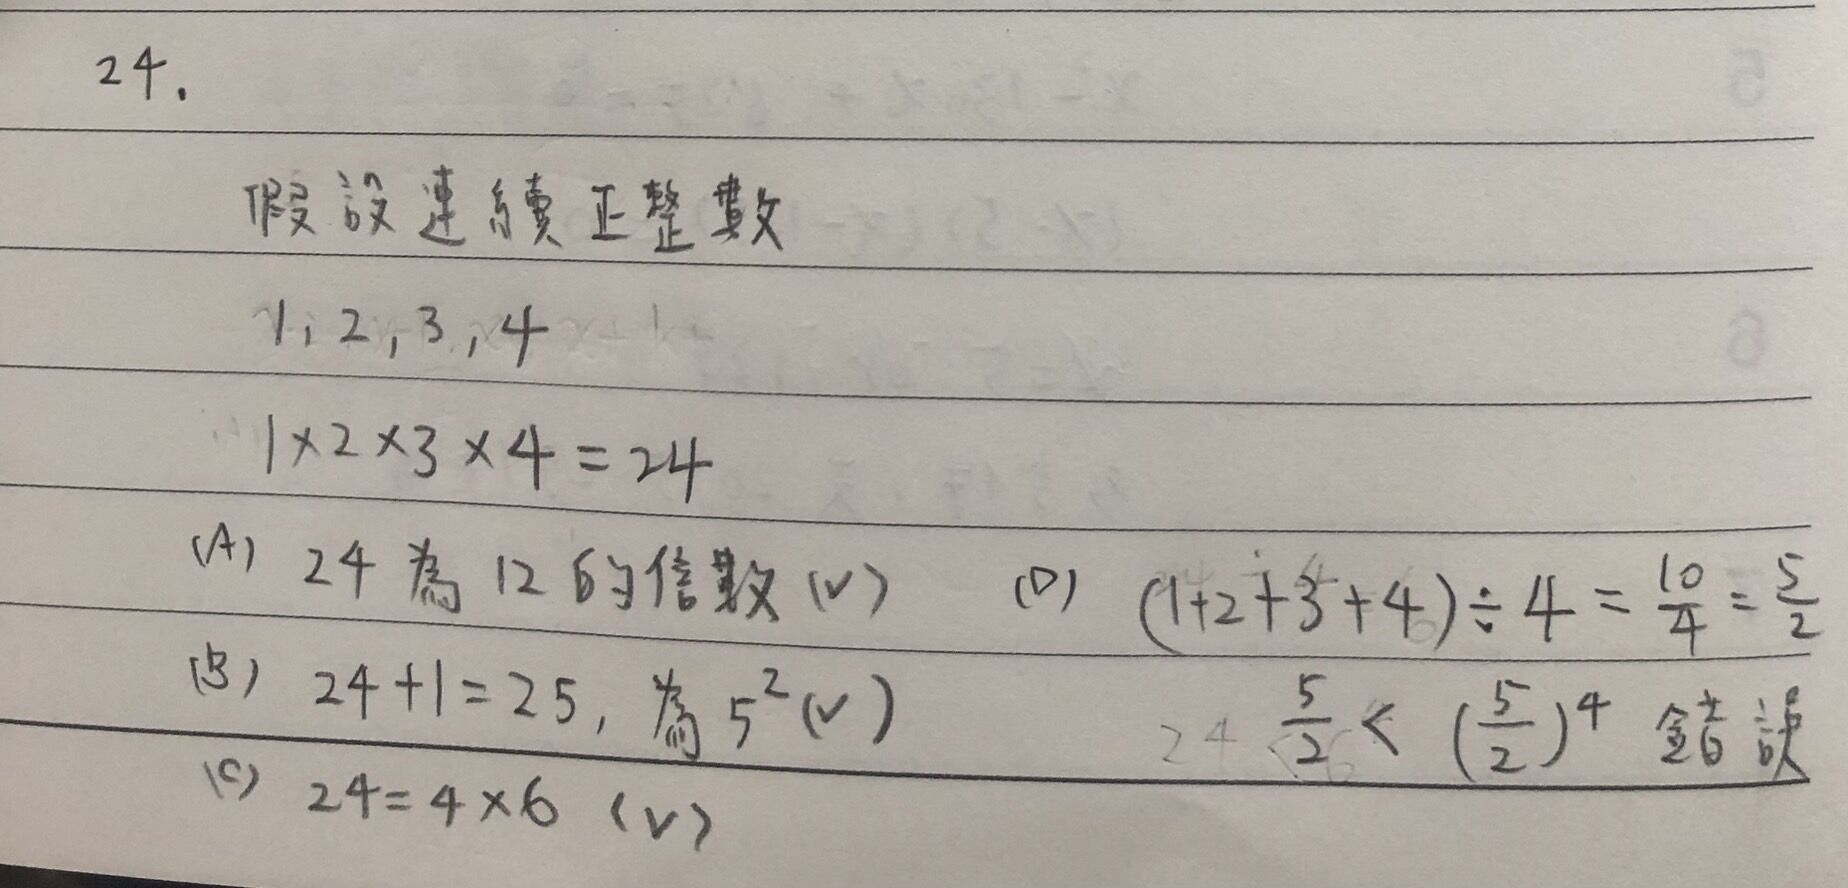 24.
假設連續正整數
1, 2, 3, 4
1×2×3×4=24
(A) 24為12的倍數(✓)
(B) 24+1=25, 為5²(✓)
(C) 24=4×6 (✓)
(D) (1+2+3+4)÷4=10/4=5/2
5/2<(5/2)⁴ 錯誤